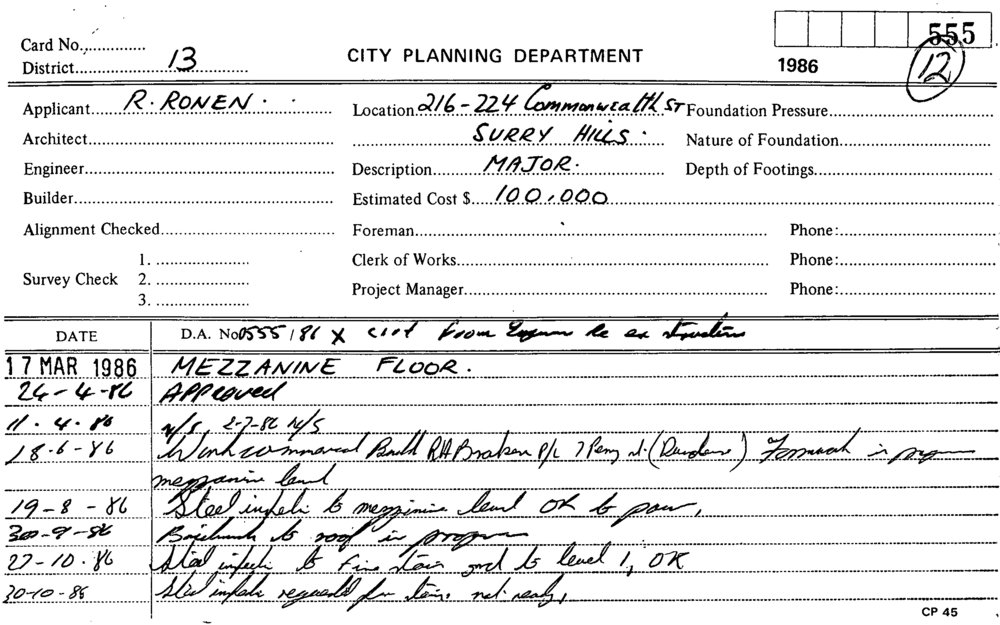 555
Card No.
District 13
CITY PLANNING DEPARTMENT
1986
12
Applicant R. RONEN.
Location 216-224 Commonwealth ST
Foundation Pressure
Architect
SURRY HILLS.
Nature of Foundation
Engineer
Description MAJOR.
Depth of Footings
Builder
Estimated Cost $ 100,000
Alignment Checked
Foreman
Phone:
Survey Check
1.
2.
3.
Clerk of Works
Phone:
Project Manager
Phone:
DATE
D.A. No 0555/86 X from re
17 MAR 1986 MEZZANINE FLOOR.
24-4-86 APPROVED
11.4.86 N/S, 2-7-86 N/S
18.6-86 Work commenced P/L 7 Formwork in
mezzanine level
19-8-86 Steel to mezzinine level OK to pour,
30-9-86 to roof in progress
27-10.86 Steel to Fire stairs grd to level 1, OK
30-10-86 Steel requested for stairs not ready,
CP 45